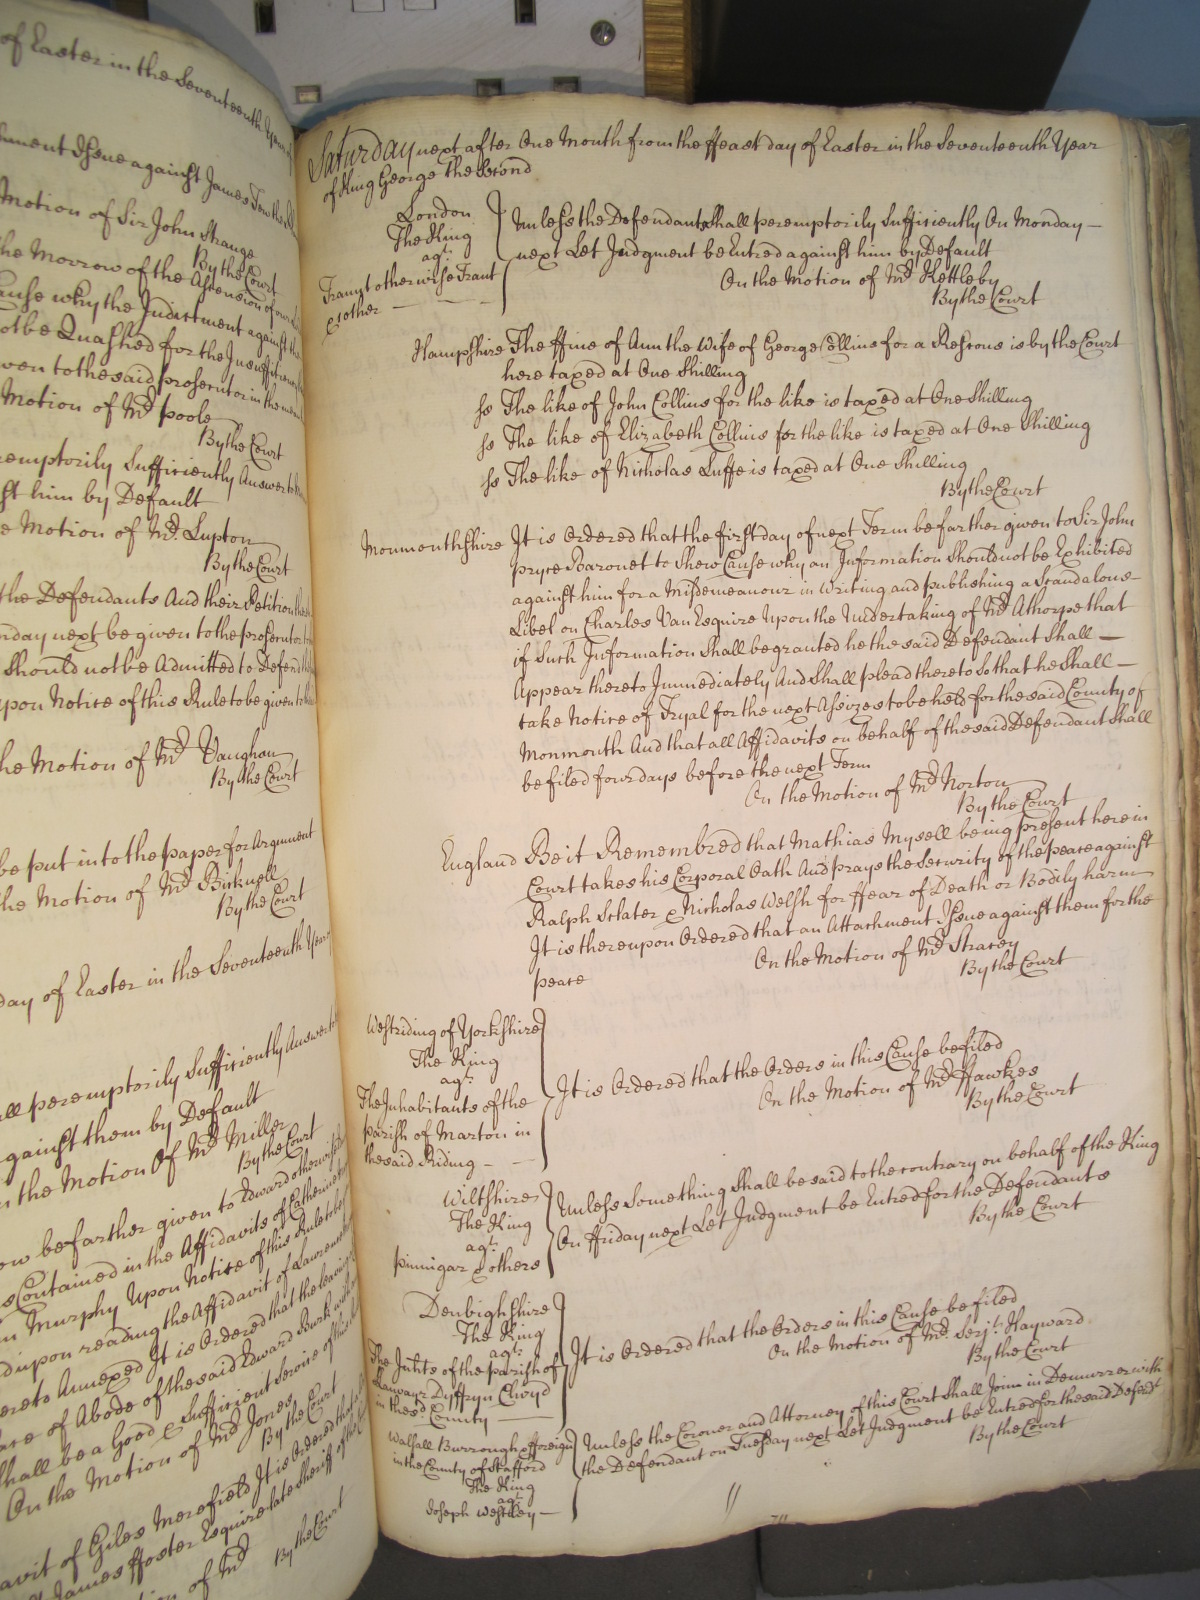 of Easter in the Seventeenth Year of
Issue against James
Motion of Sir John Strange
By the Court
the Morrow of the Ascension of our
Cause why the Indictment against the
not be Quashed for the Insufficiency
given to the said prosecutor in the mean
Motion of Mr. Poole
By the Court
peremptorily Sufficiently Answer
him by Default
Motion of Mr. Lupton
By the Court
the Defendants And their Petition
Monday next be given to the prosecutor
should not be Admitted to Defend
upon Notice of this Rule to be given to
the Motion of Mr. Vaughan
By the Court
be put into the paper for Argument
the Motion of Mr. Bicknell
By the Court
day of Easter in the Seventeenth Year
shall peremptorily Sufficiently Answer
against them by Default
On the Motion Of Mr. Miller
By the Court
now be farther given to Edward otherwise
Contained in the Affidavits of Catherine
Murphy Upon Notice of this Rule to be
upon reading the Affidavit of Lawrence
hereto Annexed It is Ordered that the leaving
place of Abode of the said Edward Burk
shall be a Good & Sufficient Service of this
On the Motion of Mr. Jones
By the Court
Affidavit of Giles Merefield It is Ordered that
James ffoster Esquire late Sheriff of the
Motion of Mr.
By the Court
Saturday next after One Month from the ffeast day of Easter in the Seventeenth Year
of King George the Second
London
The King
agt.
Trant otherwise Trant
& other
Unless the Defendants Shall peremptorily Sufficiently On Monday
next Let Judgment be Entred against him by Default
On the Motion of Mr. Kettleby
By the Court
Hampshire The ffine of Ann the Wife of George Collins for a Rescous is by the Court
here taxed at One Shilling
ss The like of John Collins for the like is taxed at One Shilling
ss The like of Elizabeth Collins for the like is taxed at One Shilling
ss The like of Nicholas Luffe is taxed at One Shilling
By the Court
Monmouthshire It is Ordered that the first day of next Term be farther given to Sir John
Pryce Baronet to Shew Cause why an Information should not be Exhibited
against him for a Misdemeanour in Writing and publishing a Scandalous
Libel on Charles Van Esquire Upon the Undertaking of Mr. Athorpe that
if such Information shall be granted he the said Defendant Shall
Appear thereto Immediately And Shall plead thereto So that he Shall
take Notice of Tryal for the next Assizes to be held for the said County of
Monmouth And that all Affidavits on behalf of the said Defendant Shall
be filed four days before the next Term
On the Motion of Mr. Norton
By the Court
England Be it Remembred that Mathias Mysell being present here in
Court takes his Corporal Oath And prays the Security of the peace against
Ralph Sclater & Nicholas Welsh for ffear of Death or Bodily harm
It is thereupon Ordered that an Attachment Issue against them for the
peace
On the Motion of Mr. Stracey
By the Court
Westriding of Yorkshire
The King
agt.
The Inhabitants of the
parish of Marton in
the said Riding
It is Ordered that the Orders in this Cause be filed
On the Motion of Mr. Hawkes
By the Court
Wiltshire
The King
agt.
Pinnigar & others
Unless Something Shall be said to the contrary on behalf of the King
On ffriday next Let Judgment be Entred for the Defendants
By the Court
Denbighshire
The King
agt.
The Inhts of the parish of
Llanvayr Dyffryn Clwyd
in the sd. County
It is Ordered that the Orders in this Cause be filed
On the Motion of Mr. Serjt. Hayward
By the Court
Walsall Burrough & fforeign
in the County of Stafford
The King
agt.
Joseph Westley
Unless the Coroner and Attorney of this Court Shall Join in Demurrer with
the Defendant on Tuesday next Let Judgment be Entred for the said Defendt
By the Court